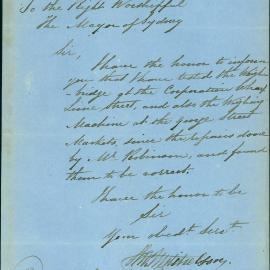 To the Right Worshipful
The Mayor of Sydney
Sir,
I have the honor to inform
you that I have tested the Weigh
bridge at the Corporation Wharf
Lime Street, and also the Weighing
Machine at the George Street
Markets, since the repairs done
by Mr. Robinson, and found
them to be correct.
I have the honor to be
Sir
Your obedt. Servt.